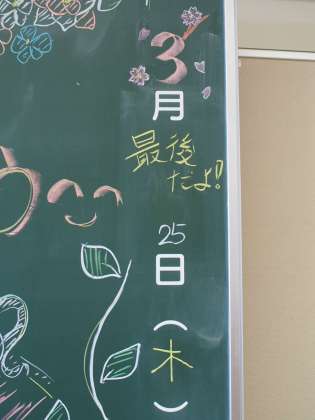 3月
最後
だよ!
25日
(木)